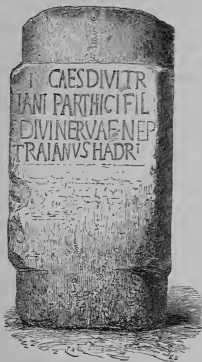 CAES DIVI TR
IANI PARTHICI FIL
DIVI NERVAE NEP
TRAIANVS HADRI